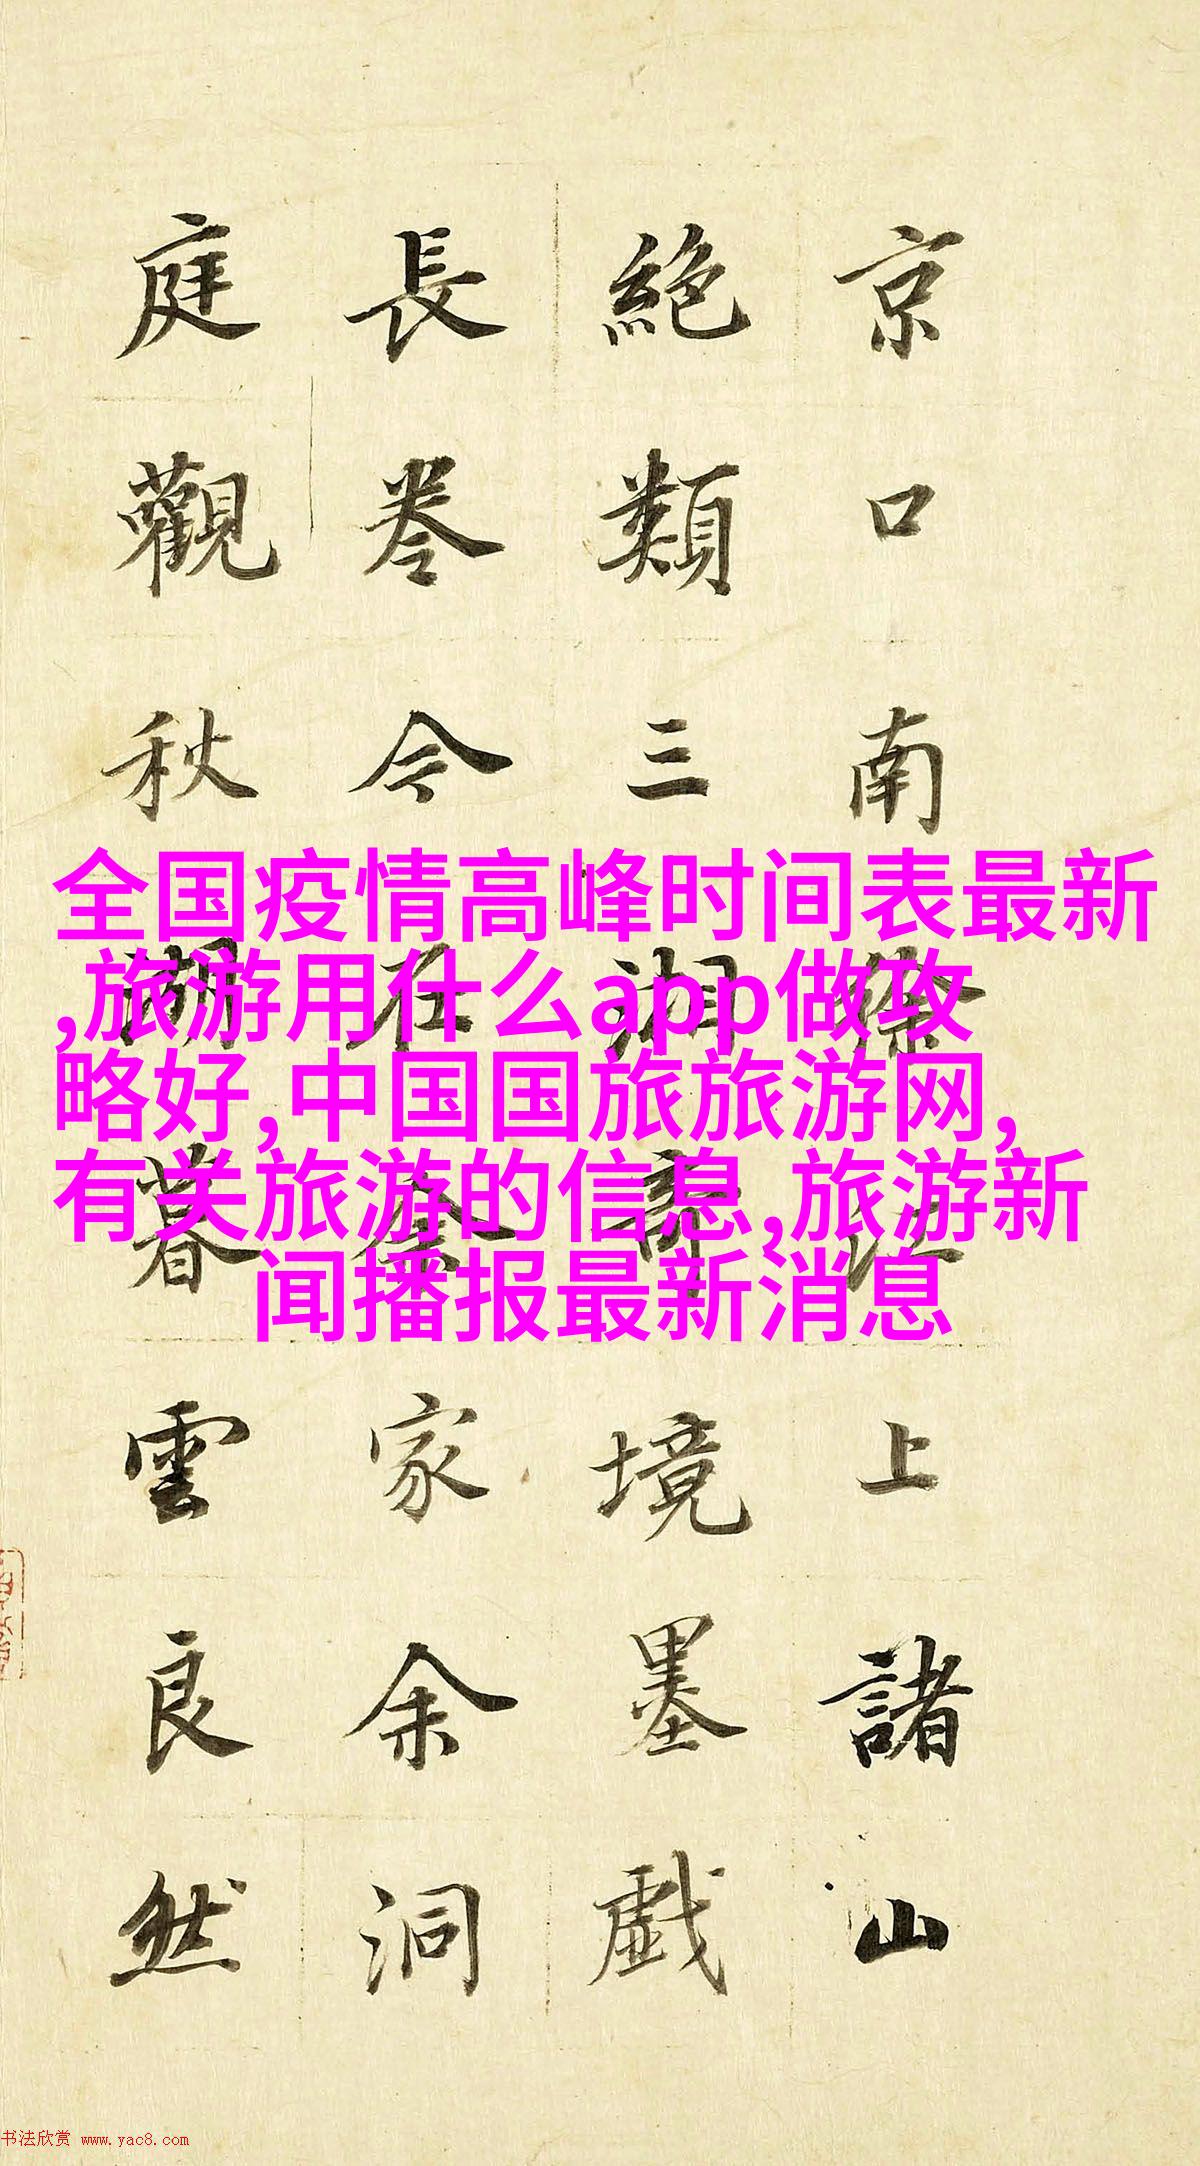 京口南徐江上諸山
絕類三湘奇境墨戲
長卷今在余家余洞
庭觀秋湖暮雲良然
全国疫情高峰时间表最新
,旅游用什么app做攻
略好,中国国旅旅游网,
有关旅游的信息,旅游新
闻播报最新消息
书法欣赏 www.yac8.com